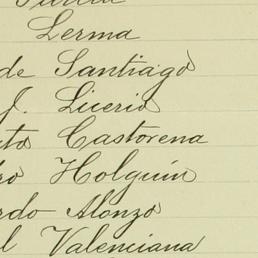 García
Lerma
de Santiago
J. Licerio
to Castorena
ro Holguín
rdo Alonzo
l Valenciana